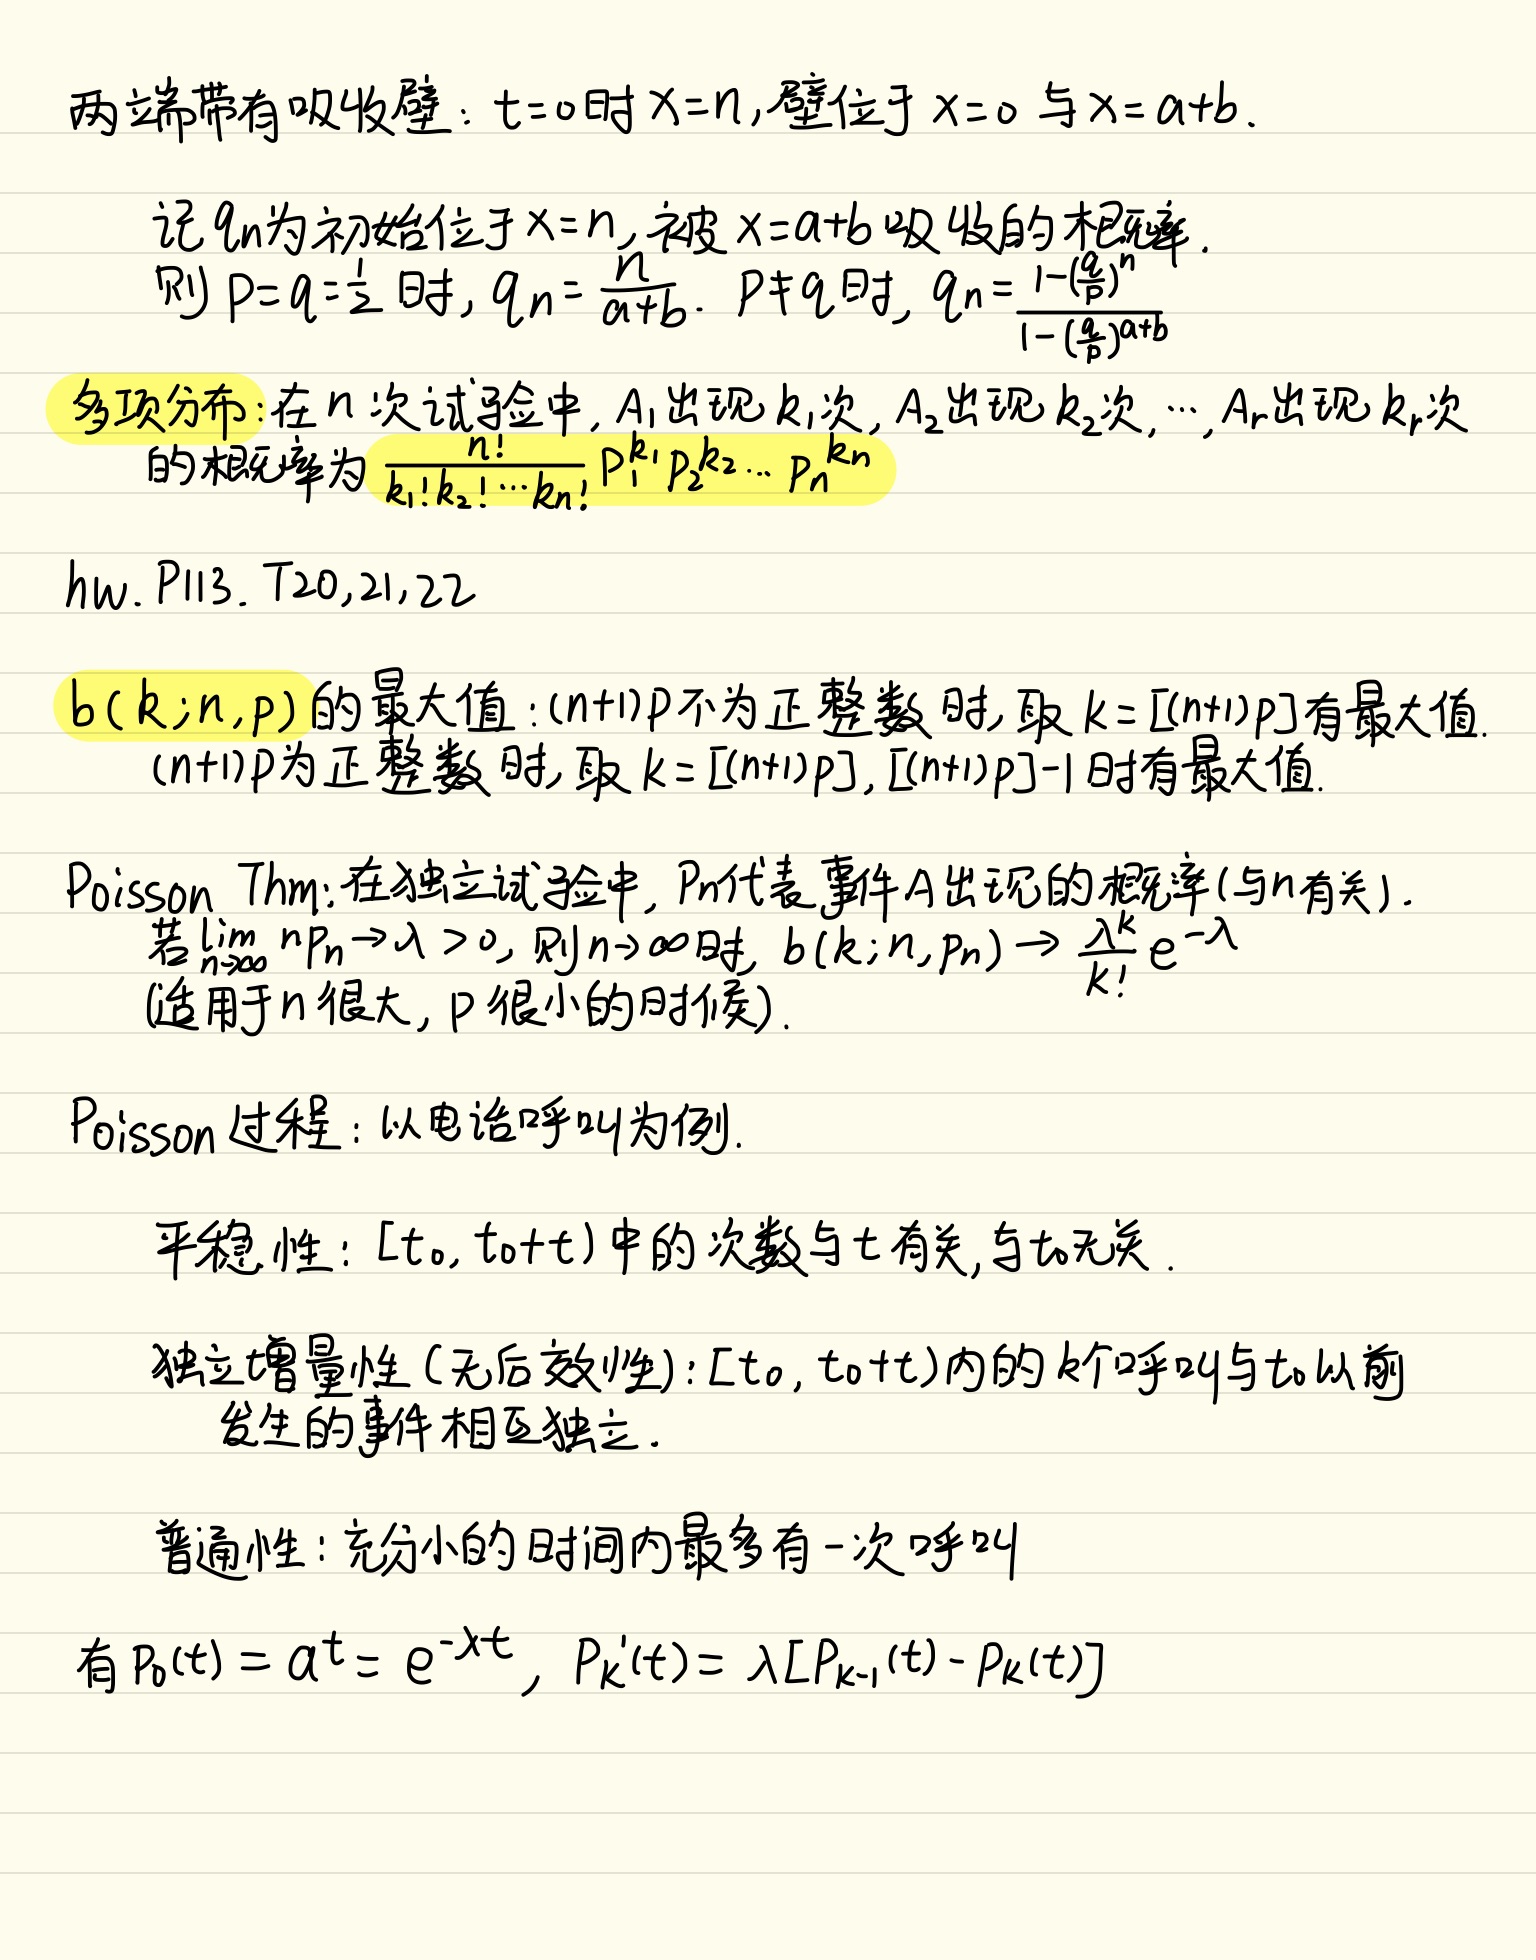 两端带有吸收壁：t=0时x=n,壁位于x=0与x=a+b.
记qn为初始位于x=n,被x=a+b吸收的概率.
则p=q=1/2时,qn=n/(a+b). p≠q时,qn=(1-(q/p)^n)/(1-(q/p)^(a+b))
多项分布:在n次试验中,A₁出现k₁次,A₂出现k₂次,…,Ar出现kr次
的概率为 n!/(k₁!k₂!…kn!) p₁^k₁ p₂^k₂…pn^kn
hw. P113. T20,21,22
b(k;n,p)的最大值:(n+1)p不为正整数时,取k=[(n+1)p]有最大值.
(n+1)p为正整数时,取k=[(n+1)p],[(n+1)p]-1时有最大值.
Poisson Thm:在独立试验中,Pn代表事件A出现的概率(与n有关).
若lim n→∞ npn→λ>0,则n→∞时,b(k;n,pn)→λ^k/k! e^-λ
(适用于n很大,p很小的时候).
Poisson过程:以电话呼叫为例.
平稳性:[t₀,t₀+t)中的次数与t有关,与t₀无关.
独立增量性(无后效性):[t₀,t₀+t)内的k个呼叫与t₀以前
发生的事件相互独立.
普通性:充分小的时间内最多有一次呼叫
有P₀(t)=a^t=e^-λt, Pk'(t)=λ[Pk-1(t)-Pk(t)]